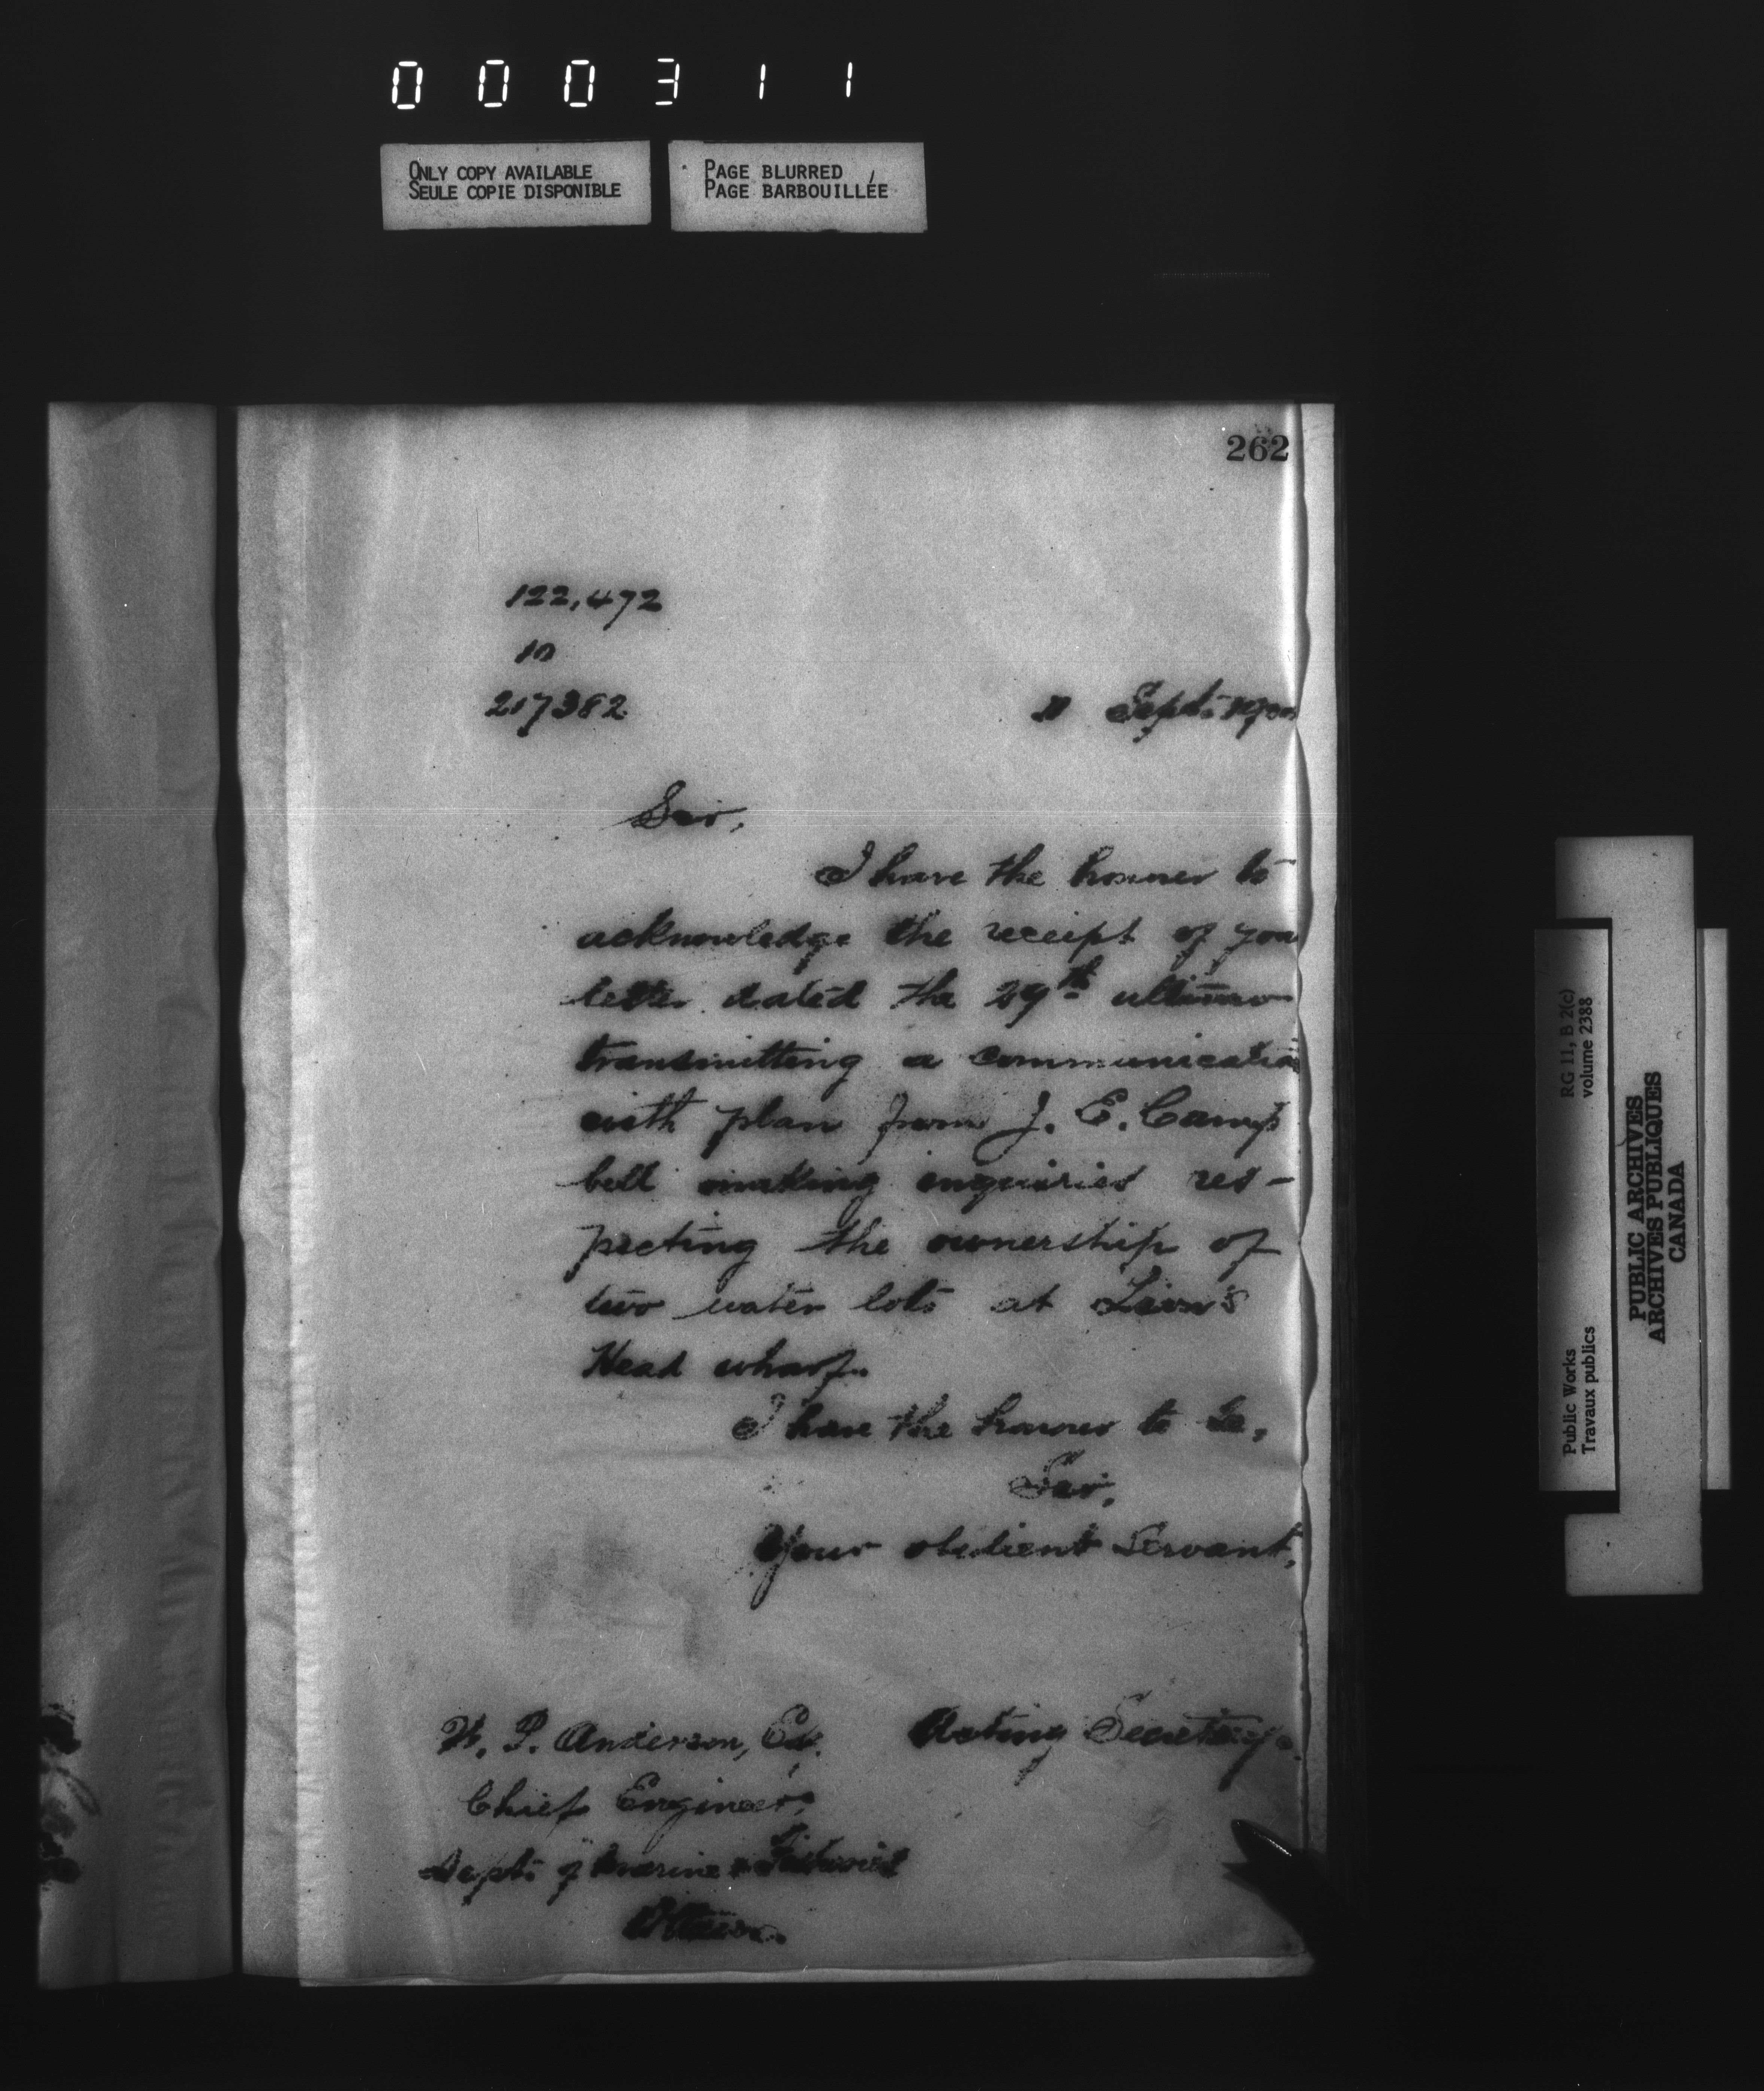 000311
ONLY COPY AVAILABLE
SEULE COPIE DISPONIBLE
PAGE BLURRED
PAGE BARBOUILLÉE
262
122,472
10
217382
Sept. 1900
Sir,
I have the honour to
acknowledge the receipt of you
letter dated the 29th ultimo
transmitting a communicatio
with plan from J. E. Camp
bell making enquiries res-
pecting the ownership of
two water lots at Lion's
Head wharf.
I have the honour to be,
Sir,
Your obedient Servant,
Acting Secretary.
W. P. Anderson, Es.
Chief Engineer,
Dept. of Marine & Fisheries
Ottawa.
RG 11, B 2(c)
volume 2388
Public Works
Travaux publics
PUBLIC ARCHIVES
ARCHIVES PUBLIQUES
CANADA